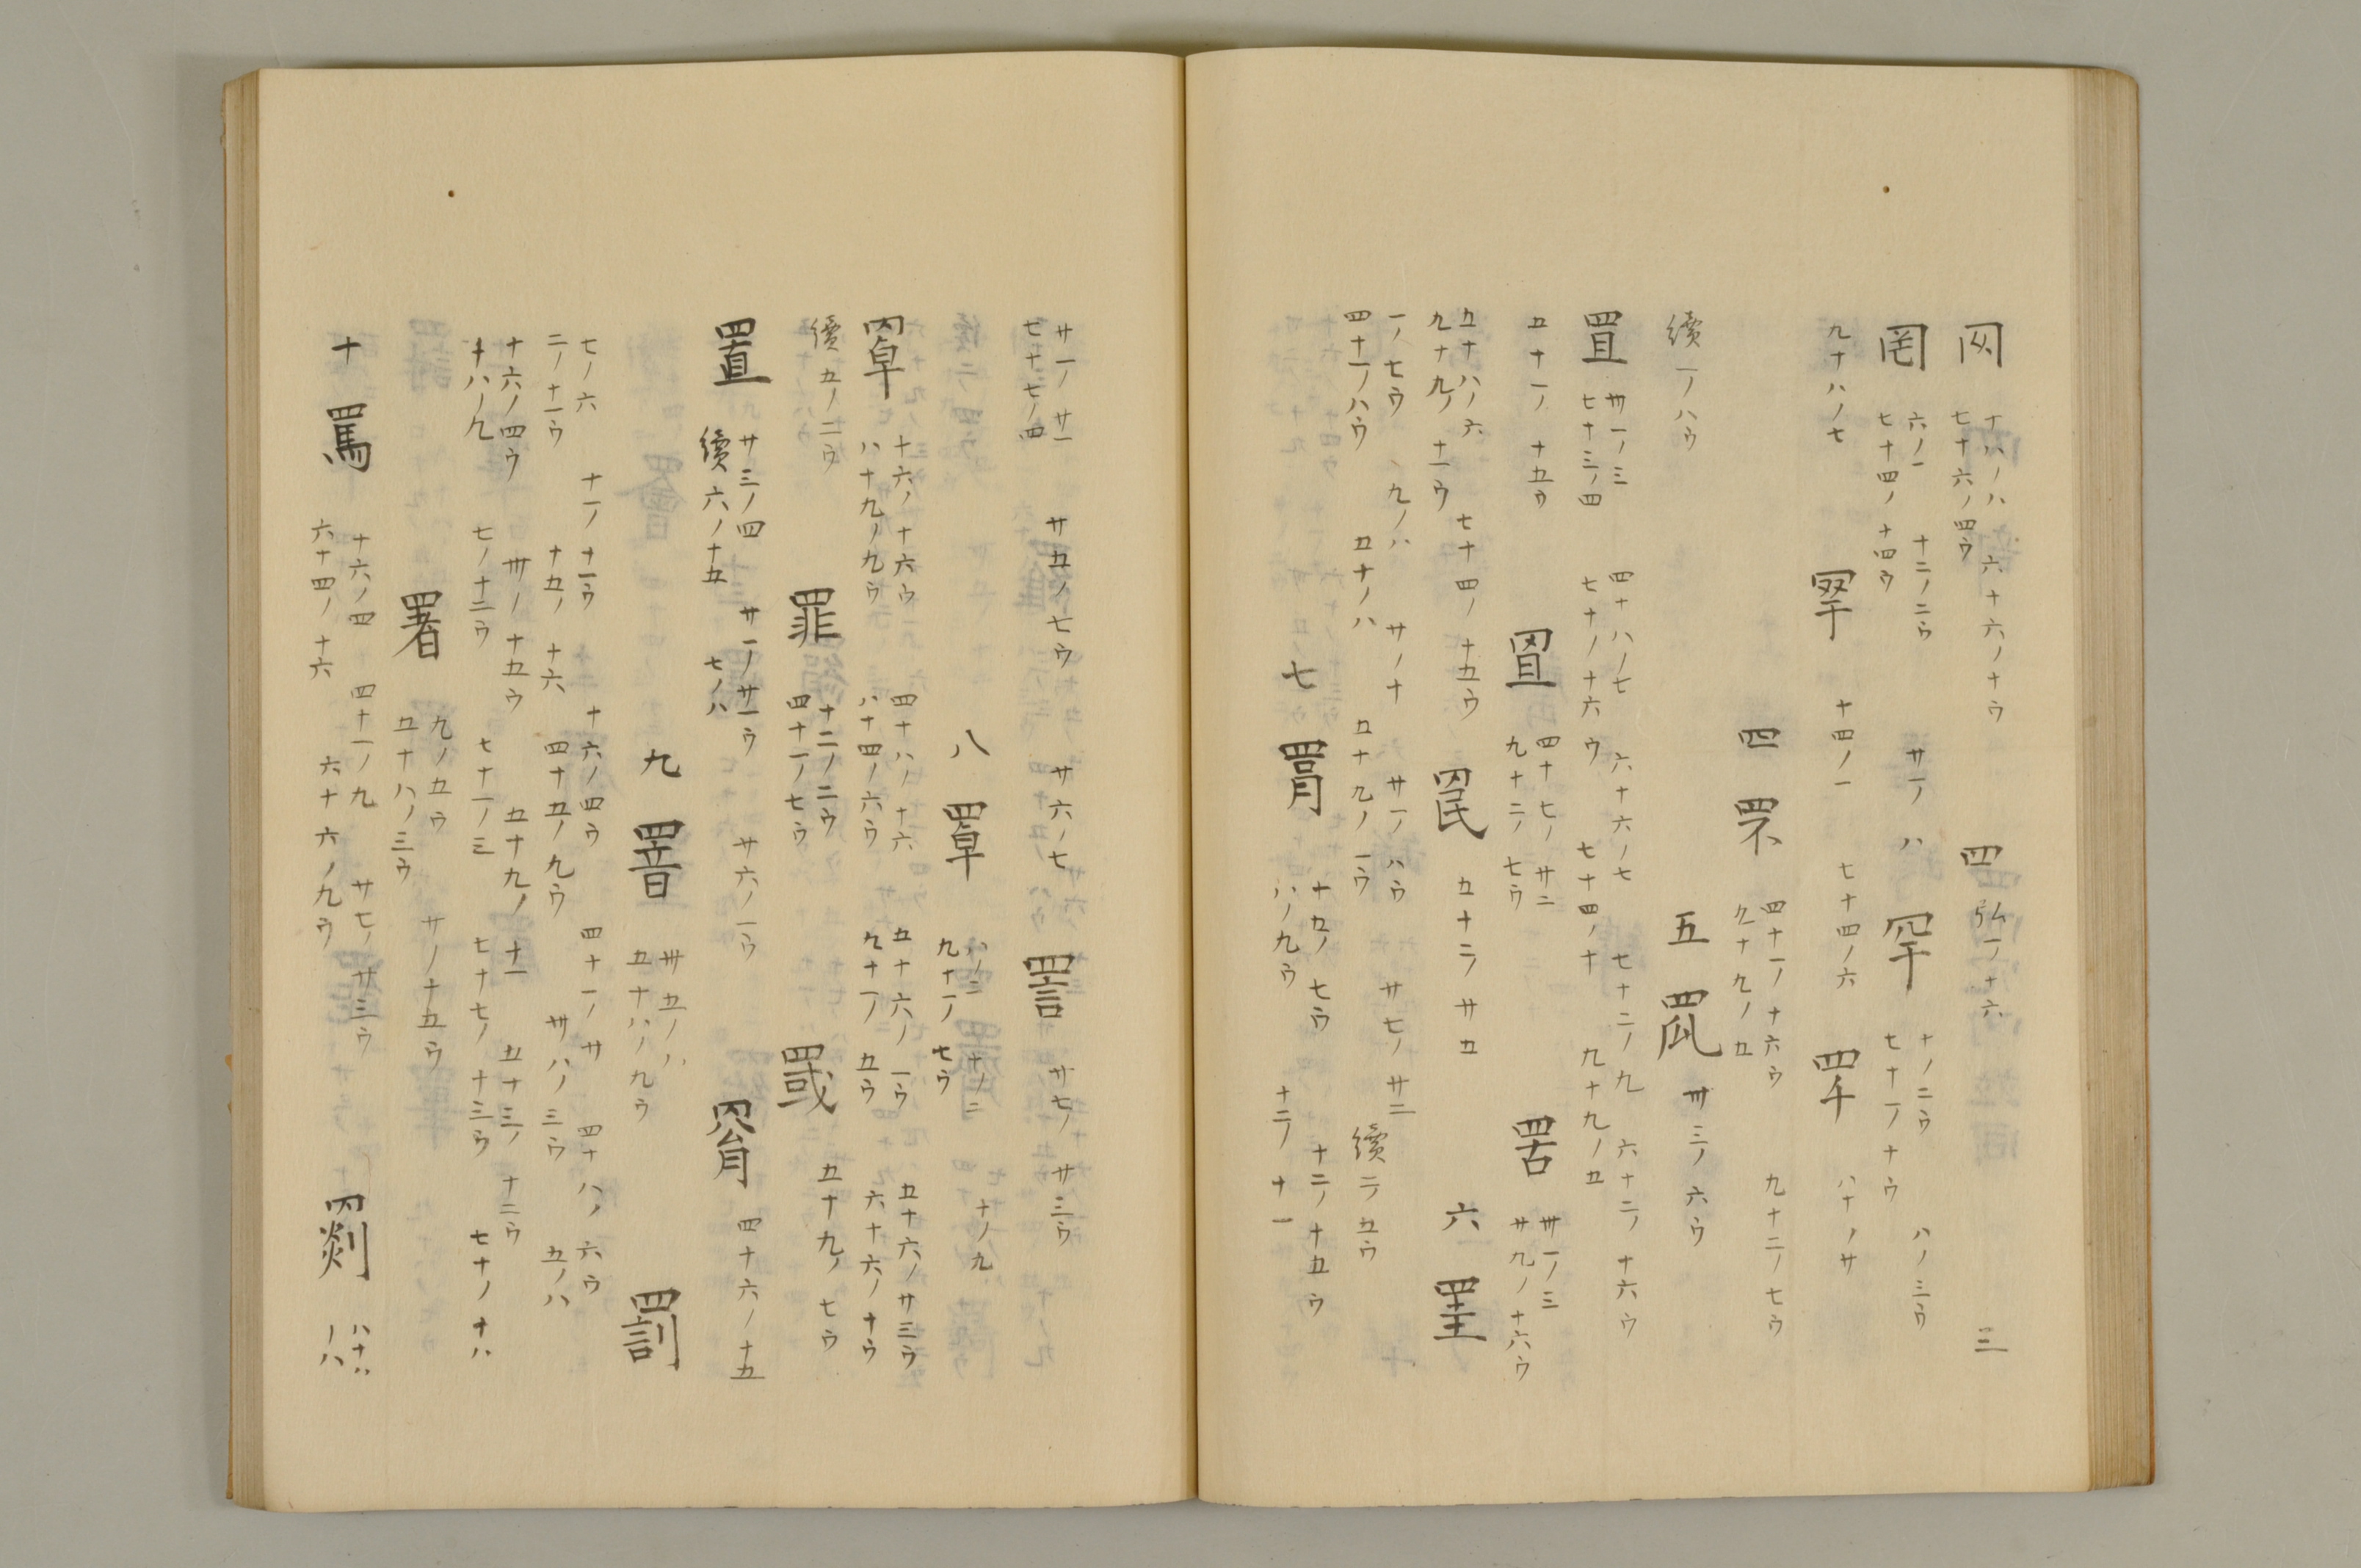 网 十八ノ八 六十六ノ十ウ 七十六ノ四ウ 四 弘一ノ十六 三
罔 六ノ一 十二ノ二ウ 廿一ノ八 七十四ノ十四ウ 罕 十ノ二ウ 八ノ三ウ 七十一ノ十ウ
九十八ノ七 十四ノ一 七十四ノ六 八十ノ廿
四 罘 四十一ノ十六ウ 九十二ノ七ウ 九十九ノ五
續一ノハウ 五 罛 卅三ノ六ウ
罝 卅一ノ三 四十八ノ七 六十六ノ七 七十二ノ九 六十二ノ十六ウ
七十三ノ四 七十ノ十六ウ 七十四ノ十 九十九ノ五
五十一ノ十五ウ 四十七ノ廿二 九十二ノ七ウ 罟 卅一ノ三 廿九ノ十六ウ
五十八ノ六 七十四ノ十五ウ 九十九ノ十一ウ 罠 五十二ノ廿五 六 罜
一ノ七ウ 九ノ八 廿ノ十 廿一ノ八ウ 廿七ノ廿二
四十一ノ八ウ 五十ノ八 五十九ノ一ウ 續二ノ五ウ
七 罥 十五ノ七ウ 十二ノ十五ウ 八ノ九ウ 十二ノ十一
廿一ノ廿一 廿五ノ七ウ 廿六ノ七 廿七ノ廿三ウ
七十七ノ四 詈
八 罩 八ノ二 十ノ二 十ノ九 九十一ノ七ウ
十六ノ十六ウ 四十八ノ十六 五十六ノ一ウ 五十六ノ廿三ウ
八十九ノ九ウ 八十四ノ六ウ 九十一ノ五ウ 六十六ノ十ウ
續五ノ二ウ 罪 十二ノ二ウ 四十一ノ七ウ 罭 五十九ノ七ウ
置 廿三ノ四 廿一ノ廿一ウ 廿六ノ一ウ 四十六ノ十五
續六ノ十五 七ノ八
九 罯 卅五ノ八 五十八ノ九ウ 罰
七ノ六 十一ノ十一ウ 十六ノ四ウ 四十一ノ廿 四十八ノ六ウ
二ノ十一ウ 十五ノ十六 四十五ノ九ウ 卅八ノ三ウ 五ノ八
十六ノ四ウ 卅ノ十五ウ 五十九ノ十一 五十三ノ十二ウ
十八ノ九 七ノ十二ウ 七十一ノ三 七十七ノ十三ウ 七十ノ十八
署 九ノ五ウ 廿ノ十五ウ 五十八ノ三ウ
十 罵 十六ノ四 四十一ノ九 廿七ノ廿三ウ
六十四ノ十六 六十六ノ九ウ